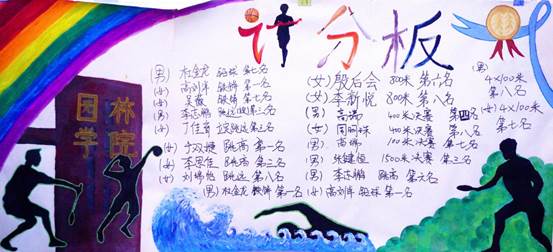 计分板
园林学院
(男) 杜金龙 铅球 第七名
(女) 高刘军 铁饼 第一名
(女) 吴薇 铁饼 第七名
(男) 李志鹏 第三名
(女) 丁佳 第三名
(女) 于双捷 跳高 第一名
(女) 李恩佳 跳高 第三名
(女) 刘婷怡 跳远 第八名
(男) 杜金龙 铁饼 第一名 (女) 高刘军 铅球 第一名
(女) 殷后会 800米 第六名
(女) 李新悦 800米 第八名
(男) 高瑞 400米决赛 第四名
(女) 400米决赛 第八名
(男) 100米决赛 第七名
(男) 张健恒 1500米决赛 第三名
(男) 李志鹏 跳高 第六名
(男)
4×100米
第八名
(女) 4×100米
第七名